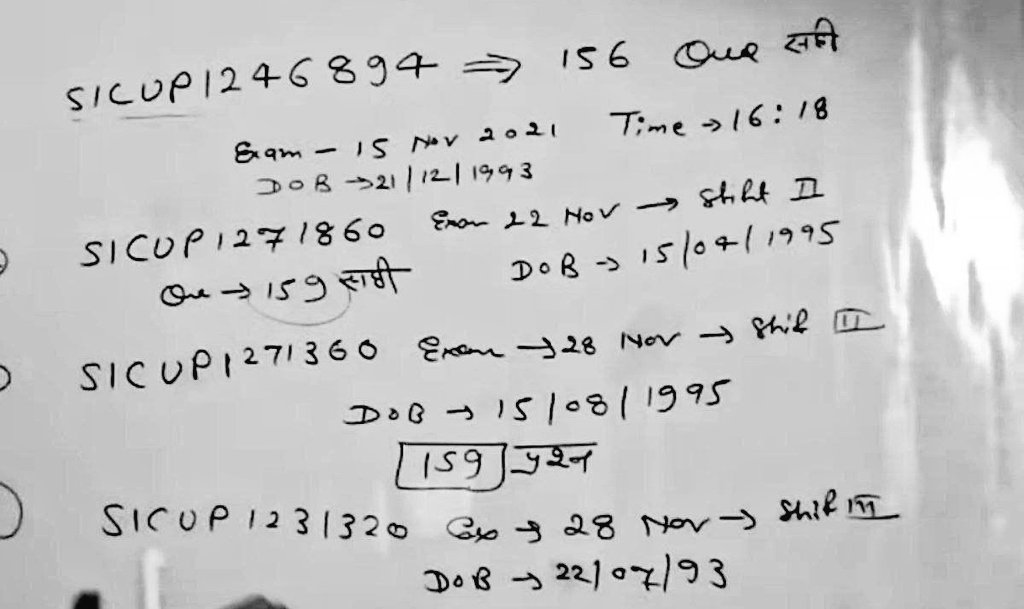 SICUP1246894 ⇒ 156 Que सही
Exam - 15 Nov 2021 Time → 16:18
DOB → 21/12/1993
SICUP1271860 Exam 22 Nov → Shift II
Que → 159 सही
DOB → 15/04/1995
SICUP1271360 Exam → 28 Nov → Shif III
DOB → 15/08/1995
159 प्रश्न
SICUP1231320 → 28 Nov → Shif III
DOB → 22/07/93